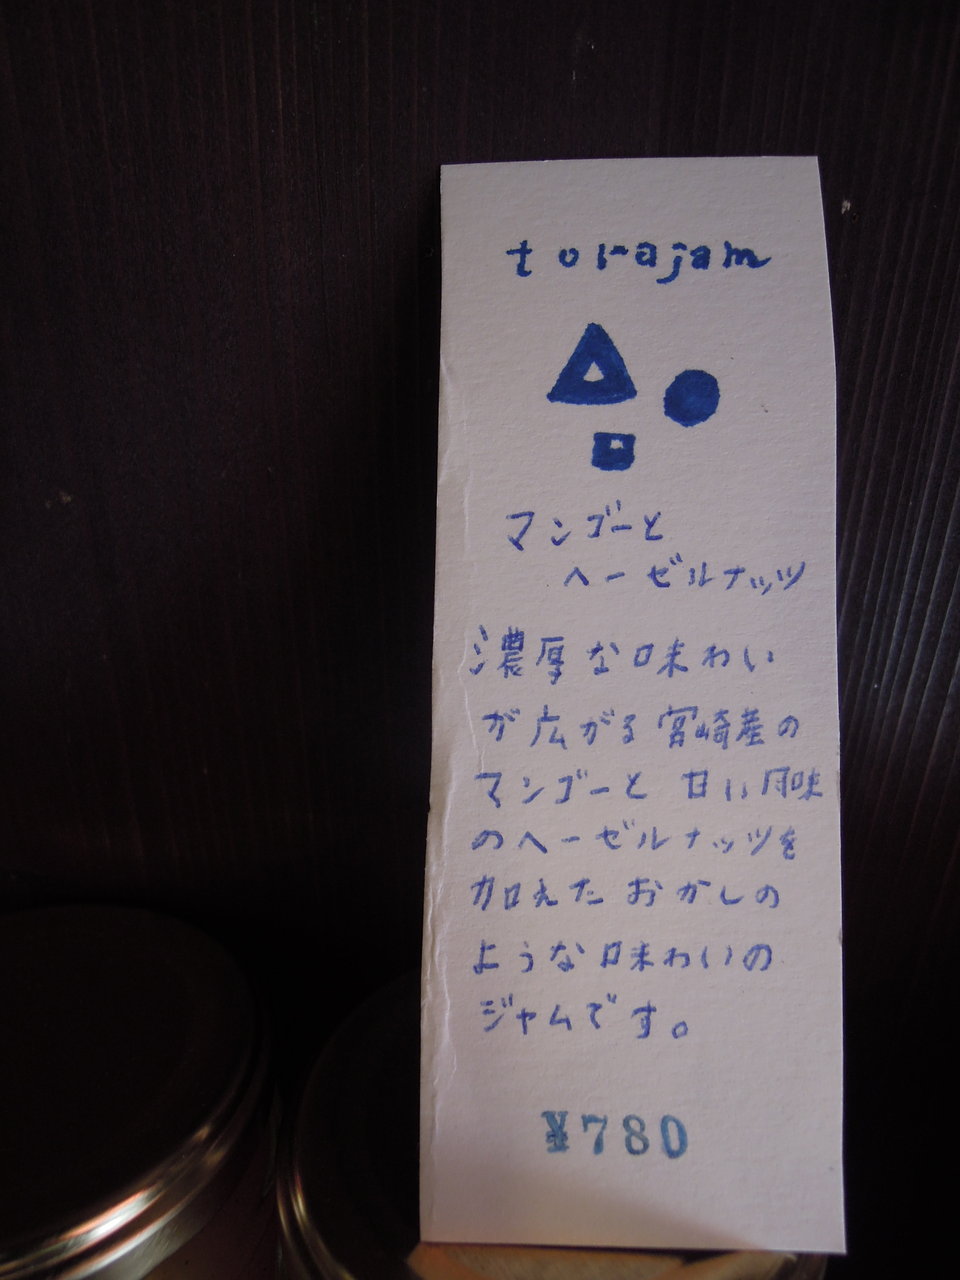 torajam
マンゴーと
ヘーゼルナッツ
濃厚な味わい
が広がる宮崎産の
マンゴーと甘い風味
のヘーゼルナッツを
加えたおかしの
ような味わいの
ジャムです。
¥780